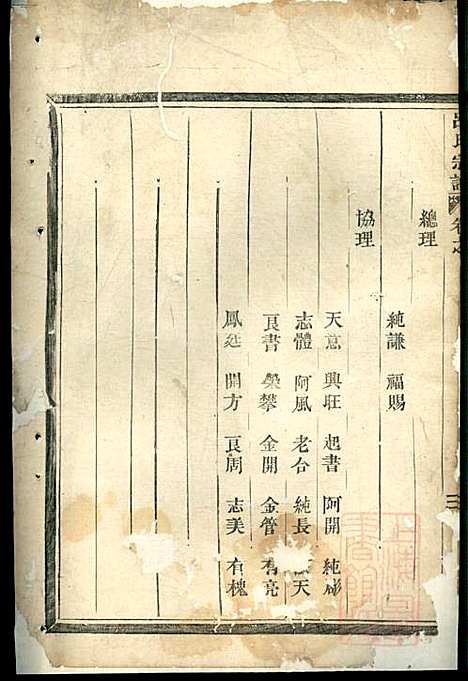 呂氏宗譜 卷之
總理
純謙 福賜
協理
天意 興旺 起書 阿開 純彬
志體 阿風 老台 純長 天
良書 榮攀 金開 金管 有亮
鳳廷 開方 良周 志美 有槐